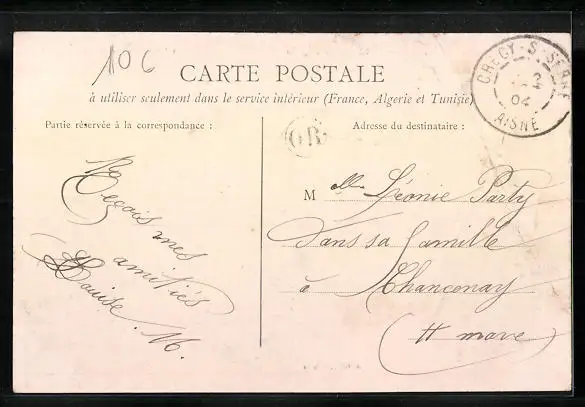 10 C
CARTE POSTALE
à utiliser seulement dans le service intérieur (France, Algerie et Tunisie)
CRECY-S-SERRE
2
04
AISNE
Partie réservée à la correspondance :
OR
Adresse du destinataire :
Reçois mes
amitiés
Louise. M.
M elle Léonie Party
Dans sa famille
à Chanconay
(H marne)